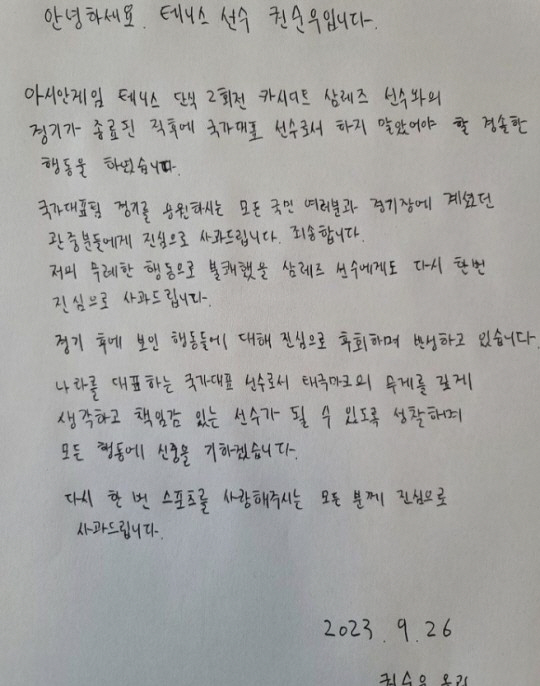 안녕하세요. 테니스 선수 권순우입니다.
아시안게임 테니스 단식 2회전 카시디트 삼레즈 선수와의
경기가 종료된 직후에 국가대표 선수로서 하지 말았어야 할 경솔한
행동을 하였습니다.
국가대표팀 경기를 응원하시는 모든 국민 여러분과 경기장에 계셨던
관중분들에게 진심으로 사과드립니다. 죄송합니다.
저의 무례한 행동으로 불쾌했을 삼레즈 선수에게도 다시 한번
진심으로 사과드립니다.
경기 후에 보인 행동들에 대해 진심으로 후회하며 반성하고 있습니다.
나라를 대표하는 국가대표 선수로서 태극마크의 무게를 깊게
생각하고 책임감 있는 선수가 될 수 있도록 성찰하며
모든 행동에 신중을 기하겠습니다.
다시 한 번 스포츠를 사랑해주시는 모든 분께 진심으로
사과드립니다.
2023. 9. 26
권순우 올림